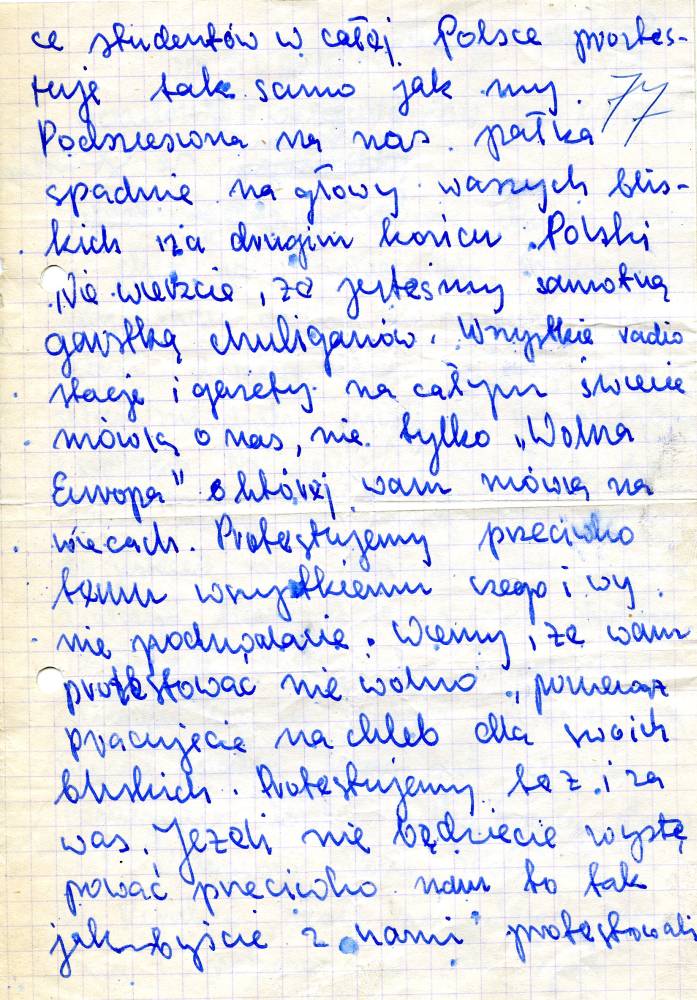 ce studentów w całej Polsce protes-
tuje tak samo jak my.
77
Podniesiona na nas pałka
spadnie na głowy waszych blis-
kich na drugim końcu Polski
Nie wierzcie, że jesteśmy samotną
garstką chuliganów. Wszystkie radio
stacje i gazety na całym świecie
mówią o nas, nie tylko „Wolna
Europa" o której wam mówią na
wiecach. Protestujemy przeciwko
temu wszystkiemu czego i wy
nie pochwalacie. Wiemy, że wam
protestować nie wolno, ponieważ
pracujecie na chleb dla swoich
bliskich. Protestujemy też i za
was. Jeżeli nie będziecie wystę
pować przeciwko nam to tak
jakbyście z nami protestowali